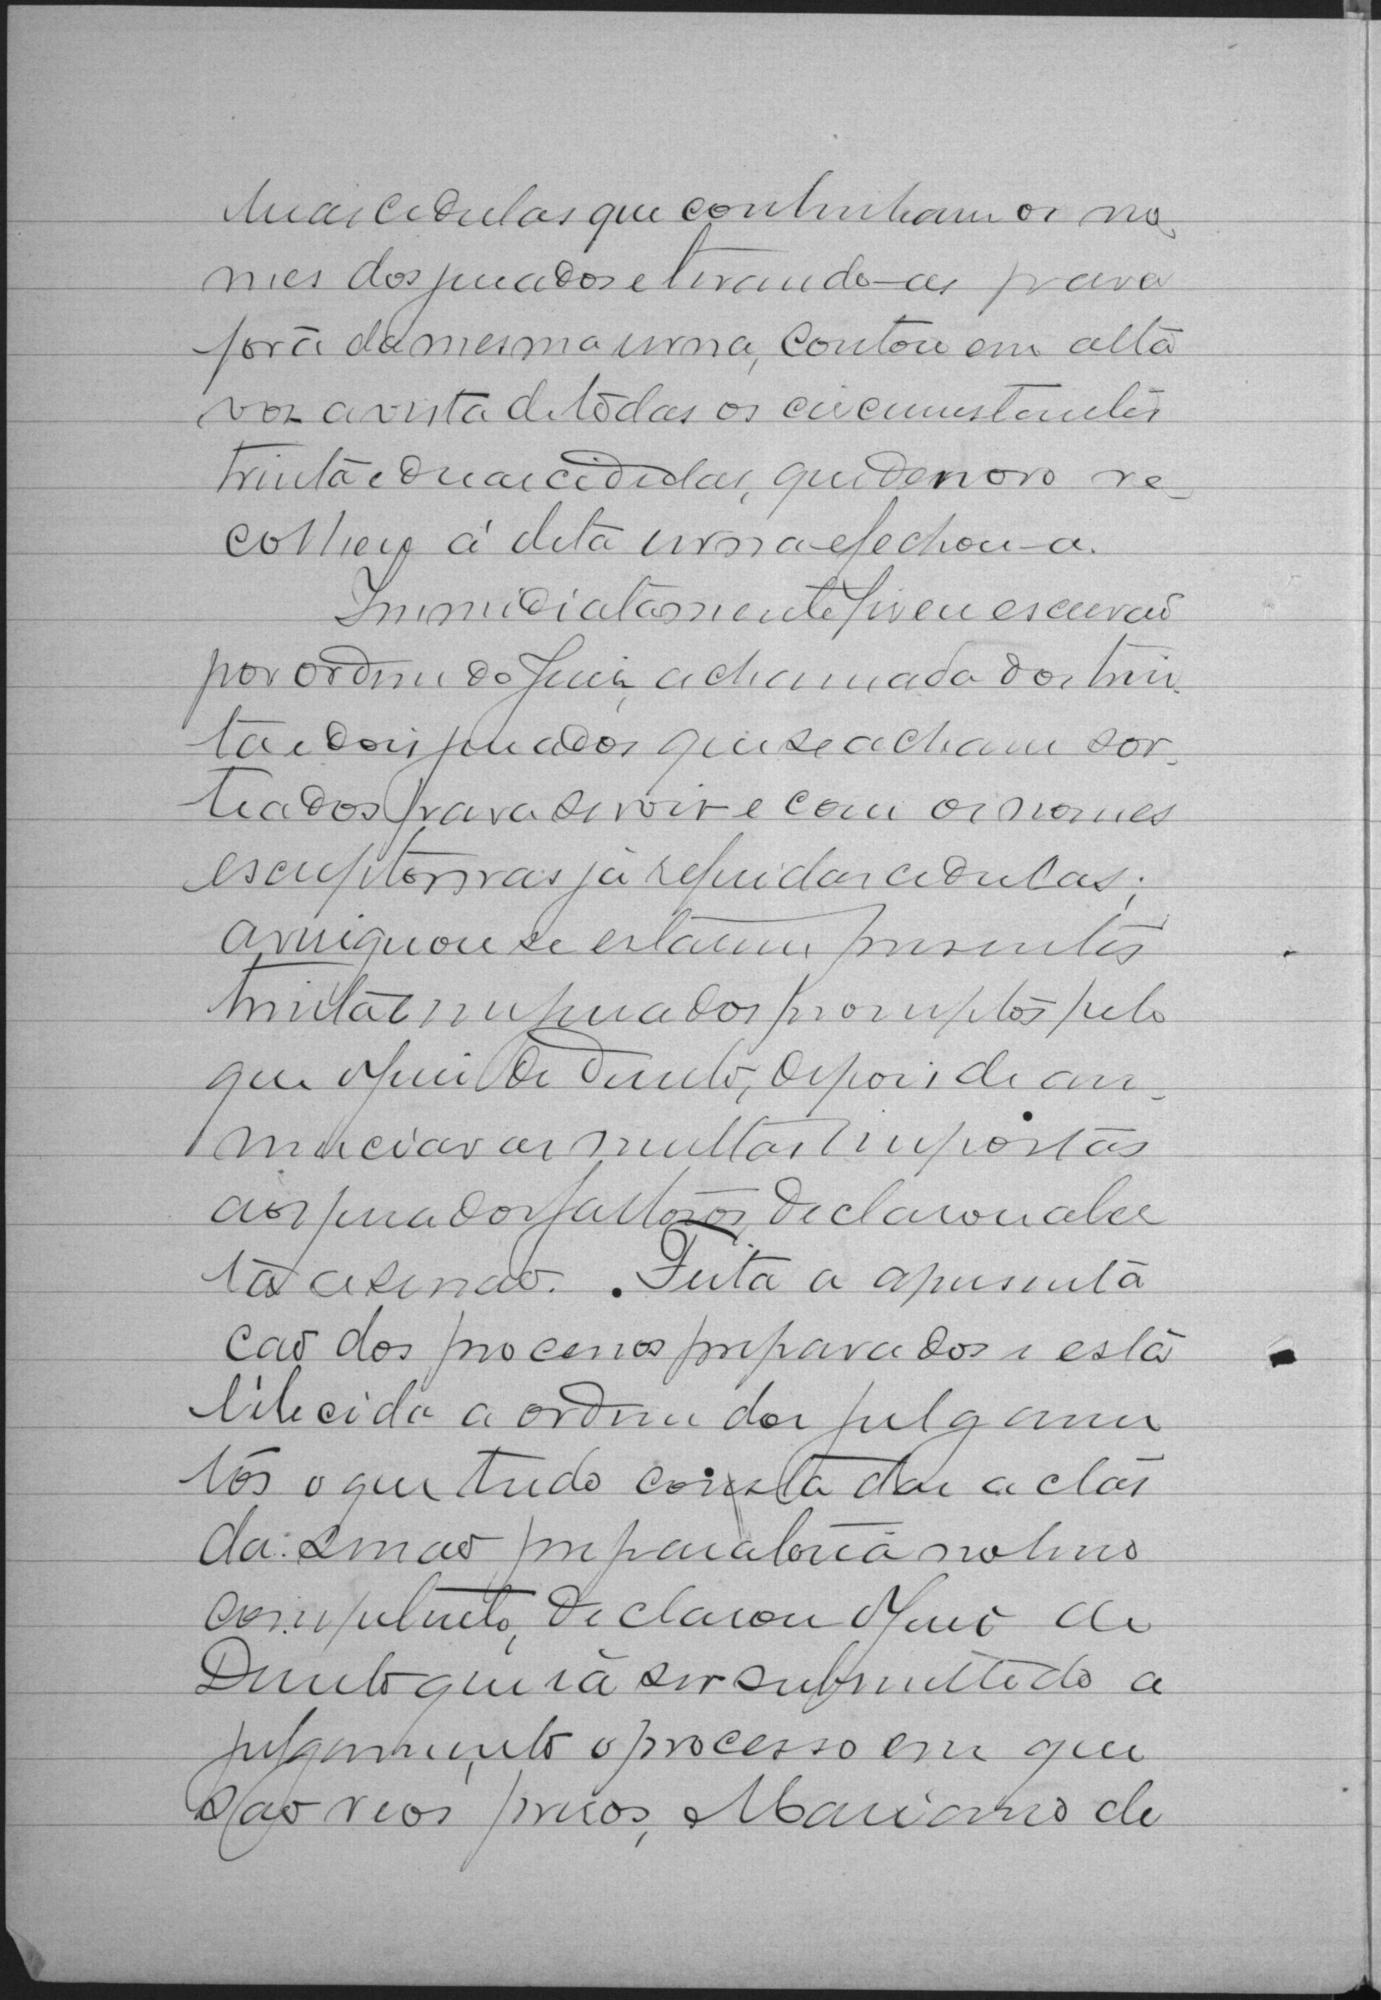 duas cedulas que continham os no-
mes dos jurados e tirando-as para
fora da mesma urna, contou em alta
voz a vista de todas os circumstantes
trinta e duas cedulas, que de novo re-
colheu á dita urna e fechou-a.
Immediatamente fiz eu escrivão
por ordem do Juiz, a chamada dos trin-
ta e dois jurados que se acham sor-
teados para servir e com os nomes
escriptos nas já referidas cedulas;
averiguou se estarem presentes
trinta e um jurados promptos pelo
que o Juiz de Direito, depois de an-
nunciar as multas impostas
aos jurados faltosos, declarou aber
ta a sessão. Feita a apresenta
ção dos processos preparados e esta
belecida a ordem dos julgamen
tos o que tudo consta das actas
da sessão preparatoria no livro
competente, declarou o Juiz de
Direito que ia ser submettido a
julgamento o processo em que
são reos presos, Mariano de